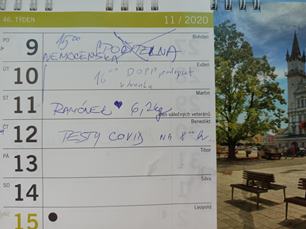 46. TÝDEN 11 / 2020
PO 9 Bohdan
NEMOCENSKÁ
ÚT 10 Evžen
16°° DOPP
ST 11 Martin
RANÓNEK ♥ 6,2kg
Den válečných veteránů
ČT 12 Benedikt
TESTY COVID NA 8°° h
PÁ 13 Tibor
SO 14 Sáva
NE 15 Leopold